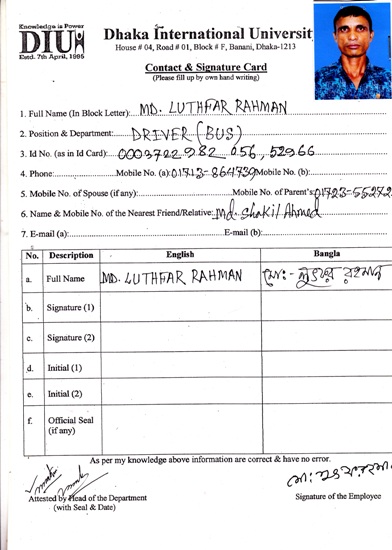 Knowledge is Power
DIU
Estd. 7th April, 1995
Dhaka International University
House # 04, Road # 01, Block # F, Banani, Dhaka-1213
Contact & Signature Card
(Please fill up by own hand writing)
1. Full Name (In Block Letter): MD. LUTHFAR RAHMAN
2. Position & Department: DRIVER (BUS)
3. Id No. (as in Id Card): 0003722982 056, 52966
4. Phone: Mobile No. (a): 01713-864739 Mobile No. (b):
5. Mobile No. of Spouse (if any): Mobile No. of Parent's: 01723-55272
6. Name & Mobile No. of the Nearest Friend/Relative: Md. Shakil Ahmed
7. E-mail (a): E-mail (b):
No. Description English Bangla
a. Full Name MD. LUTHFAR RAHMAN মোঃ- লুৎফর রহমান
b. Signature (1)
c. Signature (2)
d. Initial (1)
e. Initial (2)
f. Official Seal
(if any)
As per my knowledge above information are correct & have no error.
Attested by Head of the Department
(with Seal & Date)
Signature of the Employee